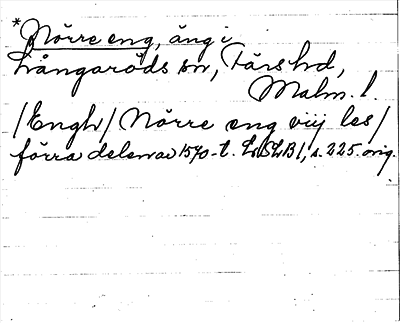 *Nörre eng, äng i
Långaröds sn, Färs hd,
Malm. l.
/Engh/ Nörre eng viij les/
förra delen av 1570-t. LSLB1, s. 225. orig.